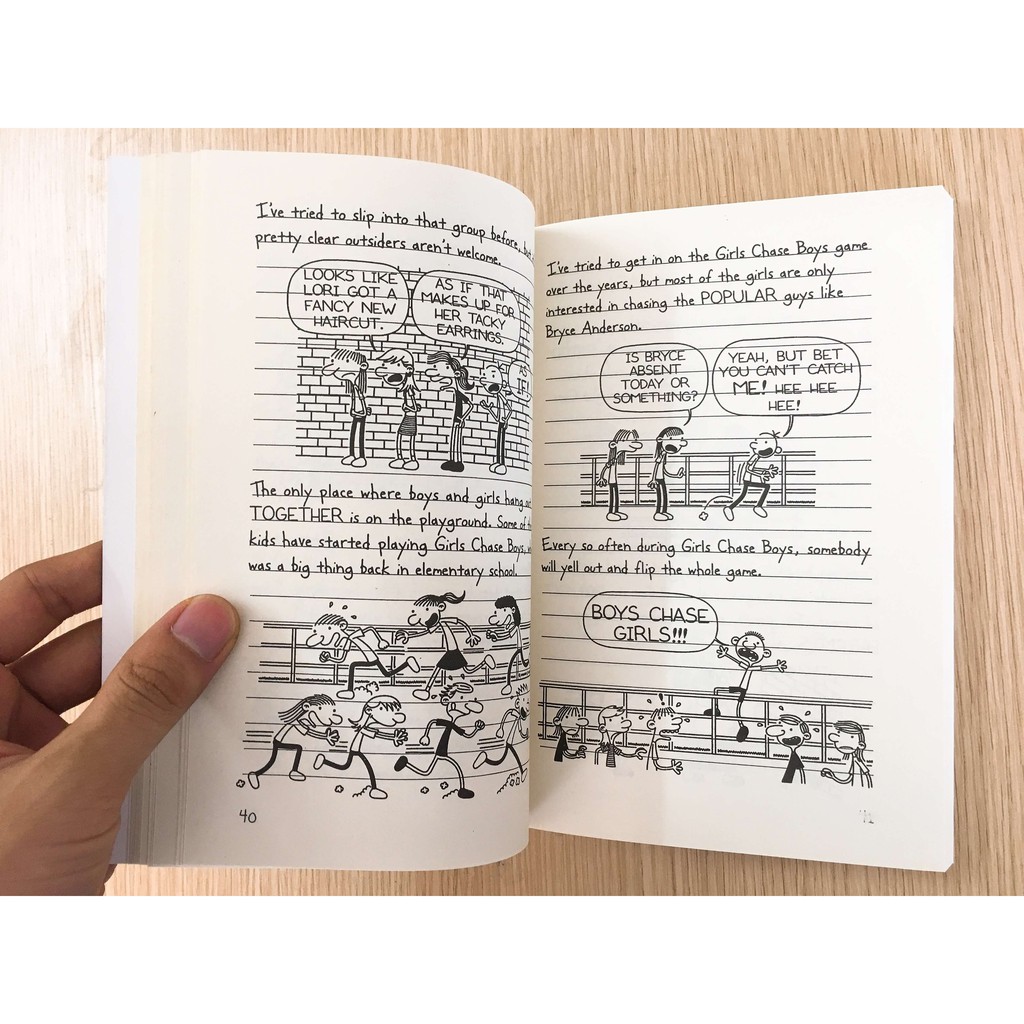 I've tried to slip into that group before,
pretty clear outsiders aren't welcome.
LOOKS LIKE
LORI GOT A
FANCY NEW
HAIRCUT.
AS IF THAT
MAKES UP FOR
HER TACKY
EARRINGS.
AS
IF!
The only place where boys and girls hang
TOGETHER is on the playground. Some of
kids have started playing Girls Chase Boys,
was a big thing back in elementary school.
40
I've tried to get in on the Girls Chase Boys game
over the years, but most of the girls are only
interested in chasing the POPULAR guys like
Bryce Anderson.
IS BRYCE
ABSENT
TODAY OR
SOMETHING?
YEAH, BUT BET
YOU CAN'T CATCH
ME! HEE HEE
HEE!
Every so often during Girls Chase Boys, somebody
will yell out and flip the whole game.
BOYS CHASE
GIRLS!!!
!